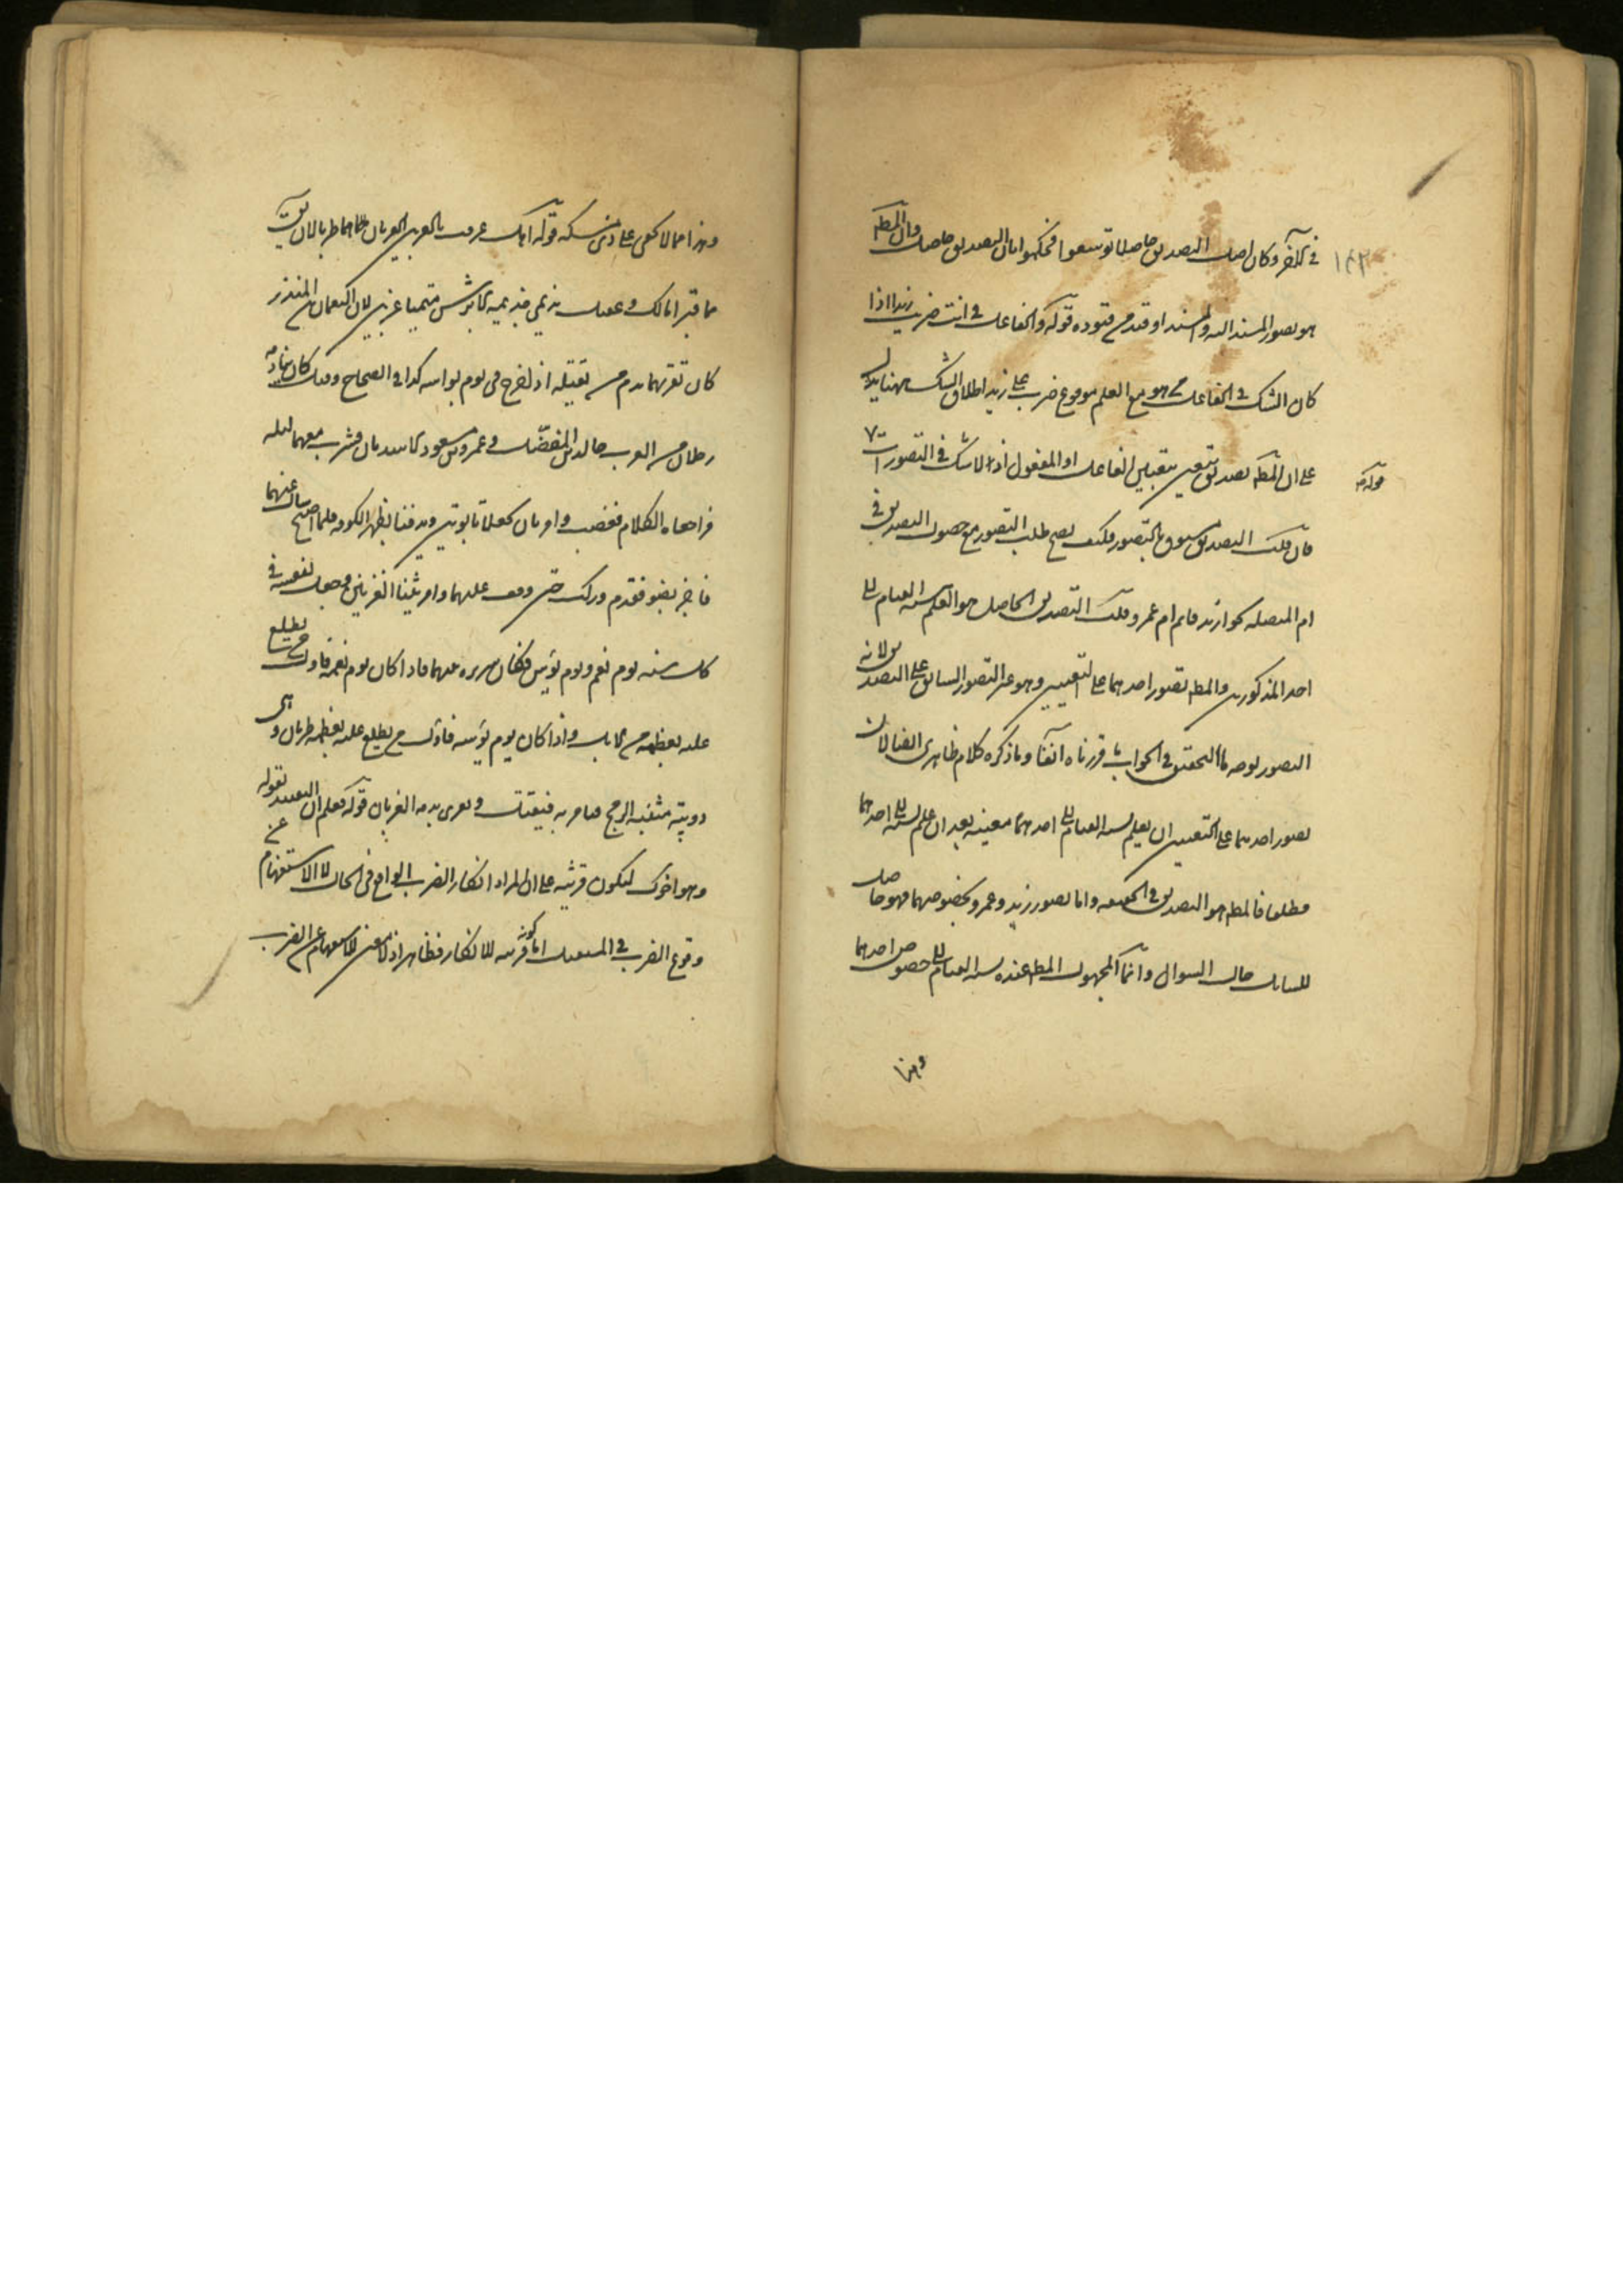 في الآخر وكان اصل التصديق حاصلا توسعوا فحكموا بان التصديق حاصل وان المط
هو تصور المسند اليه والمسند او قيد من قيوده قوله والفاعل في انت ضربت زيدا اذا
كان الشك في الفاعل من هو مع العلم بوقوع ضرب على زيد اطلاق الشك ههنا يدل
على ان المط تصديق يتعين بتعيين الفاعل او المفعول اذ لا شك في التصورات
قوله
فان قلت التصديق مسبوق بالتصور فكيف يصح طلب التصور مع حصول التصديق في
ام المتصلة نحو ازيد قايم ام عمرو قلت التصديق الحاصل هو العلم بنسبة القيام الى
احد المذكورين والمط تصور احدهما على التعيين وهو غير التصور السابق على التصديق لانه
التصور بوجه ما التحقيق في الجواب ما قررناه آنفا وما ذكره كلام ظاهري
تصور احدهما على التعيين ان يعلم نسبة القيام الى احدهما معينة بعد ان علم نسبته الى احدهما
مطلقا فالمط هو التصديق في الحقيقة واما تصور زيد وعمرو بخصوصهما فهو حاصل
للسايل حال السوال وانما المجهول المط عنده نسبة القيام الى خصوص احدهما
وهذا
وهذا مما لا يخفى على ذي مسكة قوله
هما قبرا مالك وعقيل نديمي جذيمة الابرش سميا غريين لان النعمان بن المنذر
كان يغريهما بدم من يقتله اذا خرج في يوم بؤسه كذا في الصحاح وقيل كان ينادمه
رجلان من العرب خالد بن المفضل وعمرو بن مسعود الاسديان فشرب معهما ليلة
فراجعاه الكلام فغضب وامر بان يجعلا في تابوتين ويدفنا بظهر الكوفة فلما اصبح سأل عنهما
فاخبر بصنعه فندم وركب حتى وقف عليهما وامر ببناء الغريين وجعل لنفسه في
كل سنة يوم نعم ويوم بؤس فكان يضع سريره بينهما فاذا كان يوم نعمه فاول من يطلع
عليه يعطيه مائة من الابل واذا كان يوم بؤسه فاول من يطلع عليه يعطيه ظربان وهي
دويبة منتنة الريح ويامر به فيقتل ويغرى بدمه الغريان قوله فعلم ان التقييد بقوله
وهو اخوك ليكون قرينة على ان المراد انكار الضرب الواقع في الحال لا الاستفهام عن
وقوع الضرب في المستقبل اما كونه قرينة للانكار فظاهر اذ لا معنى للاستفهام عن الضرب